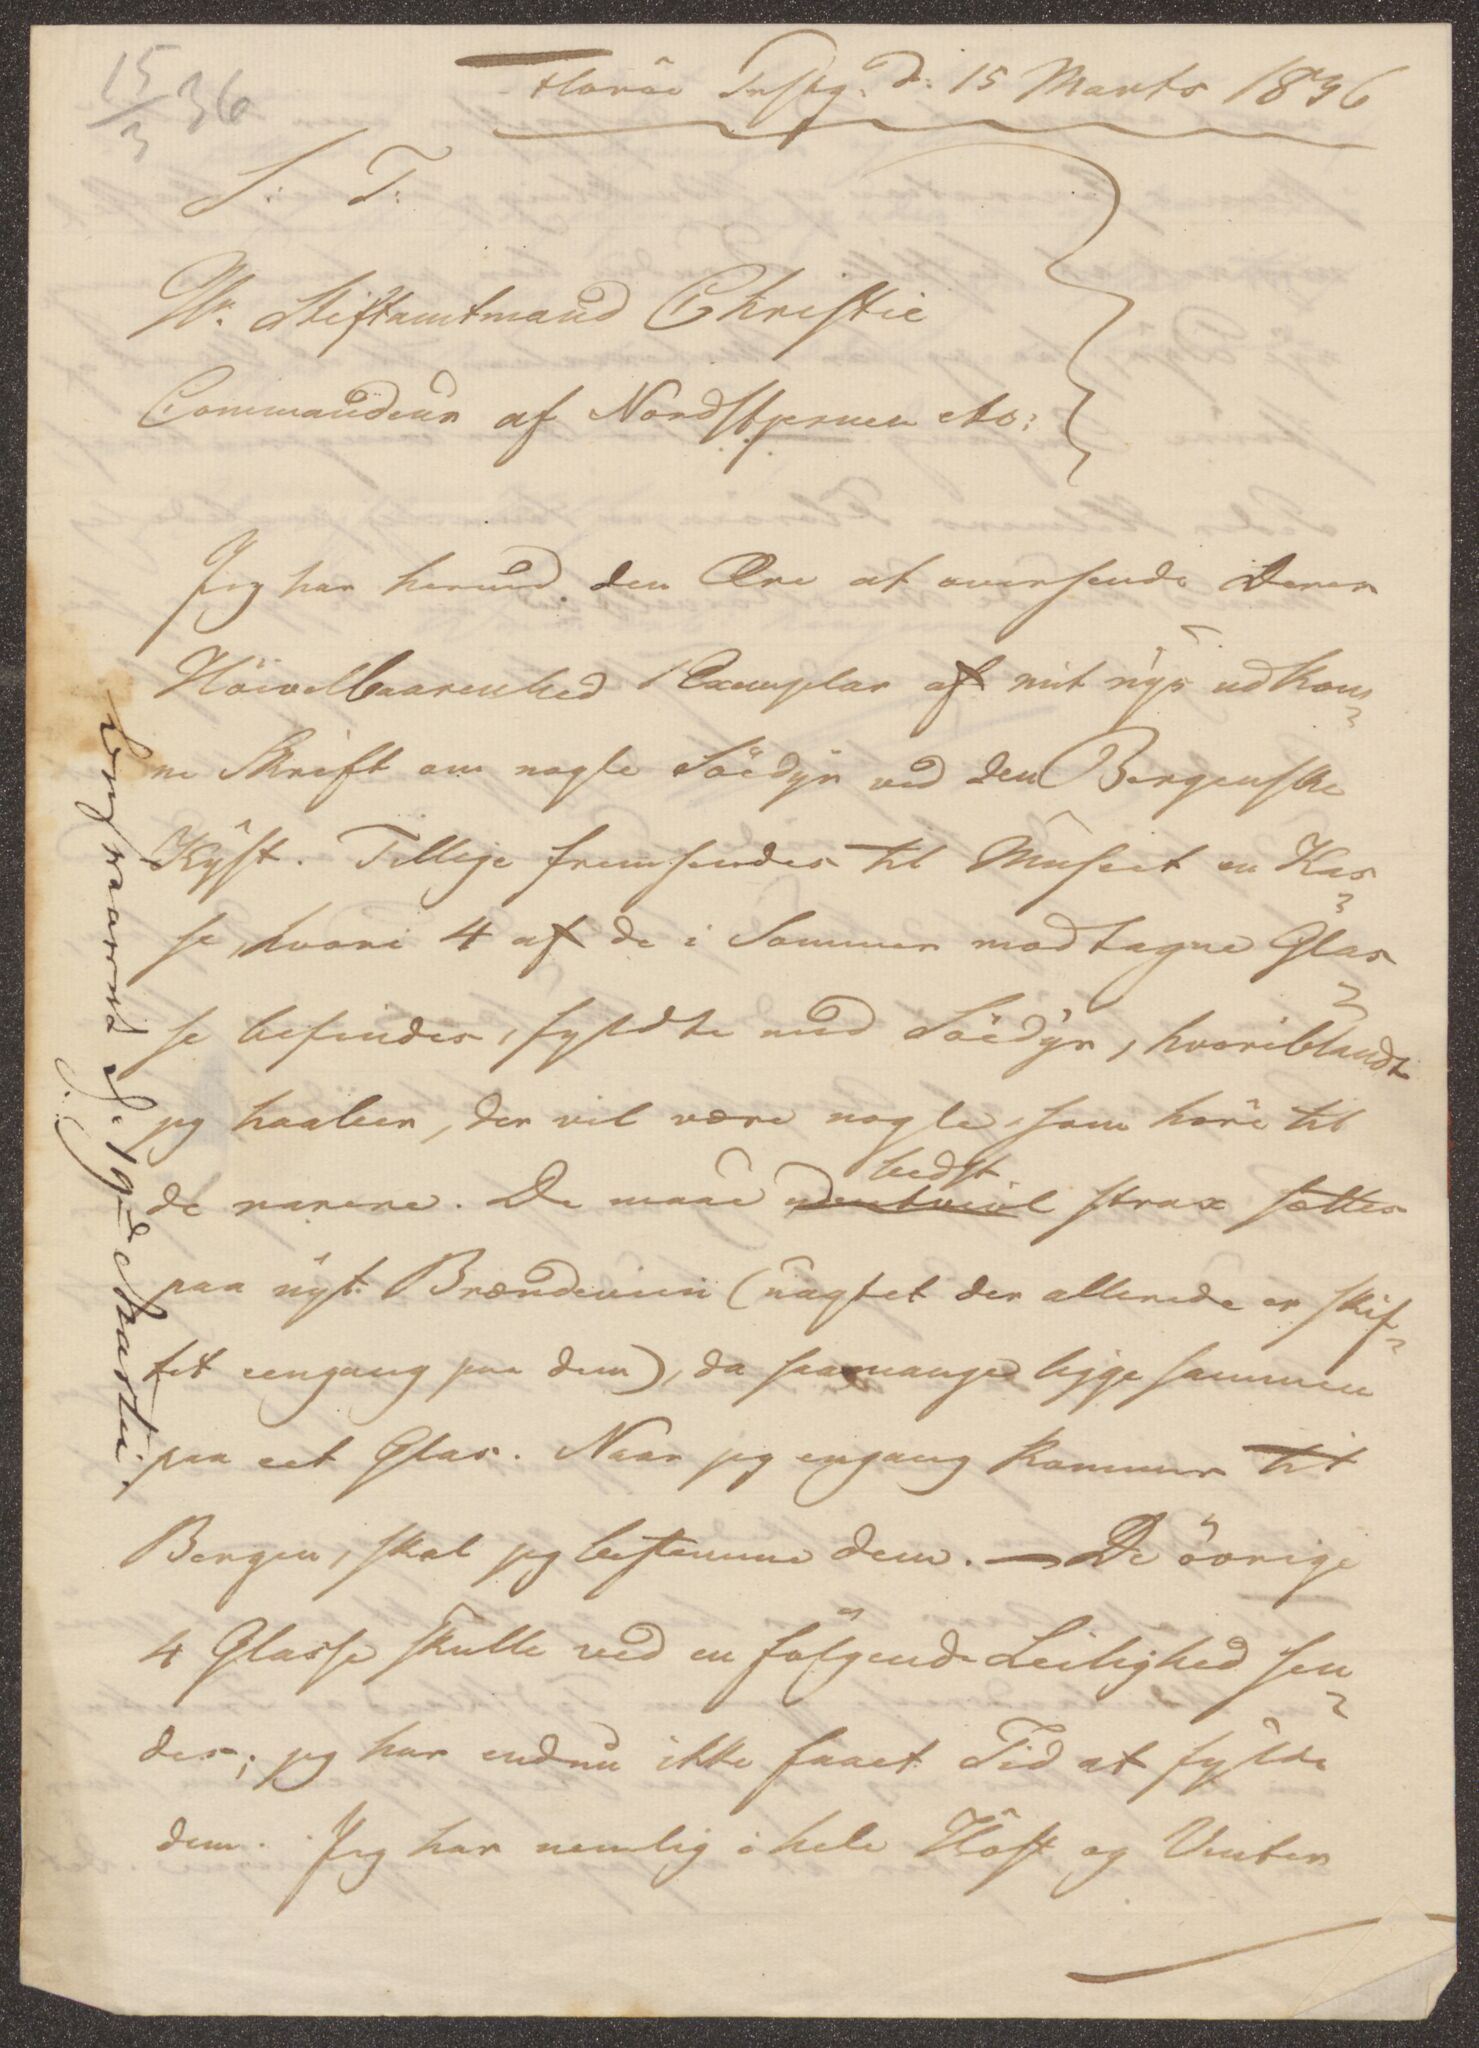 15/3 36
Florøe Prstg. d: 15 Marts 1836
S: T:
Hr. Stiftamtmand Christie
Commandeur af Nordstjernen etc:
Jeg har herved den Ære at oversende Deres
Höivelbaarenhed 1 Exemplar af mit nys udkom-
ne Skrift om nogle Söedyr ved den Bergenske
Kyst. Tillige fremsendes til Museet en Kas-
se, hvori 4 af de i Sommer modtagne Glas-
se befindes, fyldte med Söedyr, hvoriblandt
jeg haaber, der vil være nogle, som höre til
de rarere. De maae bedst strax sættes
paa nyt Brændeviin (uagtet der allerede er skif-
tet eengang paa dem), da saamange ligge sammen
paa eet Glas. Naar jeg engang kommer til
Bergen, skal jeg bestemme dem. — De övrige
4 Glasse skulle ved en fölgende Leilighed sen-
des; jeg har endnu ikke faaet Tid at fylde
dem. Jeg har nemlig i hele Höst og Vinter
d. 19de Martii.